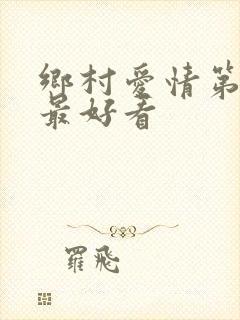 鄉村愛情第
最好看
羅飛